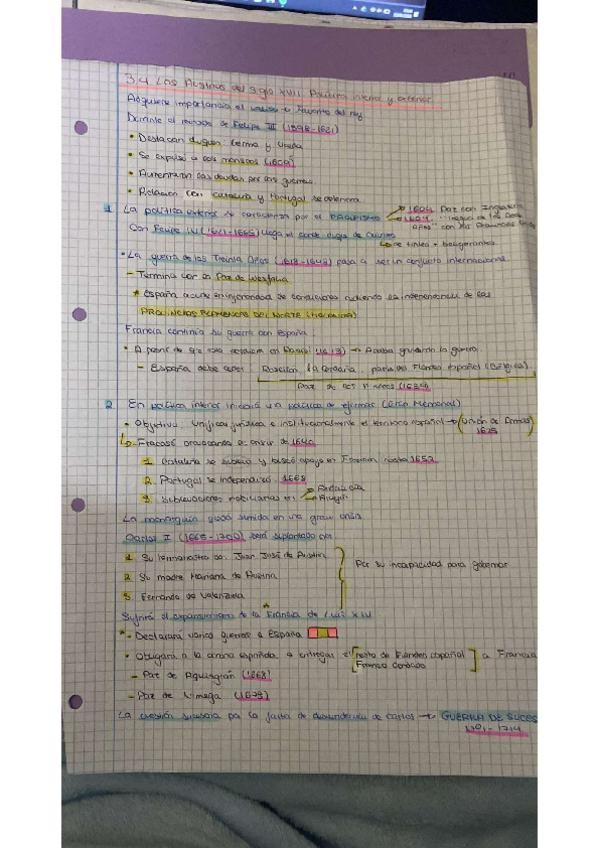 3.4 Los Austrias del siglo XVII. Política interior y exterior
Adquiere importancia el valido o Favorito del rey
Durante el reinado de Felipe III (1598-1621)
• Destacan duques: Lerma y Uceda
• Se expulsó a los moriscos (1609)
• Aumentaron las deudas por las guerras
• Relación con Cataluña y Portugal se deteriora
1 La política exterior se caracteriza por el PACIFISMO → 1604 Paz con Inglaterra
→ 1609 Tregua de los Doce
años con las Provincias Unidas
Con Felipe IV (1621-1665) llega el conde duque de Olivares
↳ de línea + beligerante
• La guerra de los Treinta Años (1618-1648) pasa a ser un conflicto internacional
- Termina con la Paz de Westfalia
* España acude en inferioridad de condiciones cediendo la independencia de las
PROVINCIAS REBELDES DEL NORTE (HOLANDA)
Francia continúa su guerra con España
• A pesar de que los vencen en Rocroi (1643) → Acaba ganando la guerra
- España debe ceder Rosellón, la Cerdaña, parte del Flandes español (Bélgica)
Paz de los Pirineos (1659)
2 En política interior iniciará una política de reformas (Gran Memorial)
• Objetivo: Unificar jurídica e institucionalmente el territorio español → (Unión de Armas)
1625
↳ Fracasó provocando la crisis de 1640
1. Cataluña se sublevó y buscó apoyo en Francia hasta 1652
2. Portugal se independizó 1668
3. Sublevaciones nobiliarias en → Andalucía
→ Aragón
La monarquía quedó sumida en una gran crisis
Carlos II (1665-1700) será suplantado por
1 Su hermanastro D. Juan José de Austria
2 Su madre Mariana de Austria
3 Fernando de Valenzuela
Por su incapacidad para gobernar
Sufrirá el expansionismo de la Francia de Luis XIV
* - Declarará varias guerras a España
• Obligará a la corona española a entregar el [resto de Flandes español
Franco Condado] a Francia
- Paz de Aquisgrán (1668)
- Paz de Nimega (1678)
La cuestión sucesoria por la falta de descendencia de Carlos → GUERRA DE SUCES
1701-1714